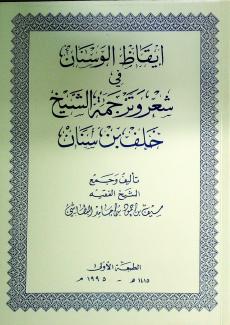 ايقاظ الوسنان
في
شعر وترجمة الشيخ
خلف بن سنان
تأليف وجمع
الشيخ الفقيه
سيف بن حمود بن حامد البطاشي
الطبعة الأولى
١٤١٥ هـ - ١٩٩٥ م